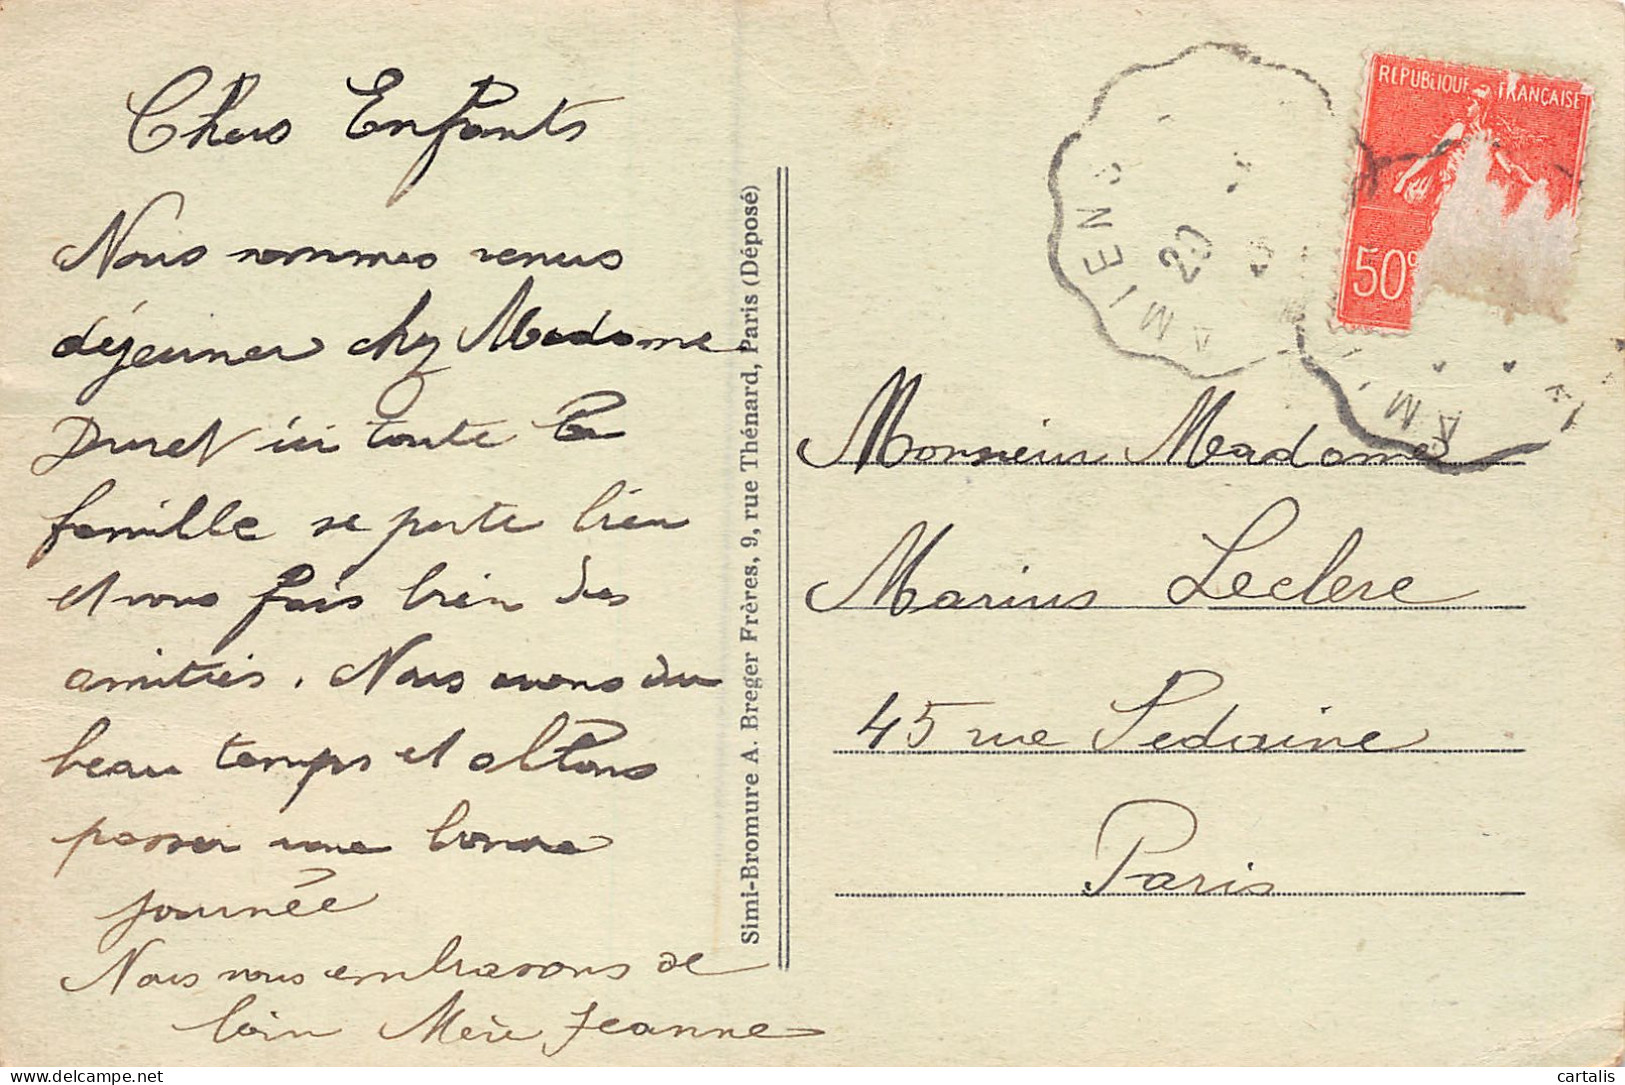 Chers Enfants
Nous sommes venus
déjeuner chez Madame
Duret ici toute la
famille se porte bien
et vous fais bien des
amitiés. Nous avons du
beau temps et allons
passer une bonne
journée
Nous vous embrassons de
loin Mère Jeanne
Simi-Bromure A. Breger Frères, 9, rue Thénard, Paris (Déposé)
REPUBLIQUE FRANÇAISE
50c
AMIENS
20
AMI
Monsieur Madame
Marius Leclere
45 rue Sedaine
Paris
cartalis